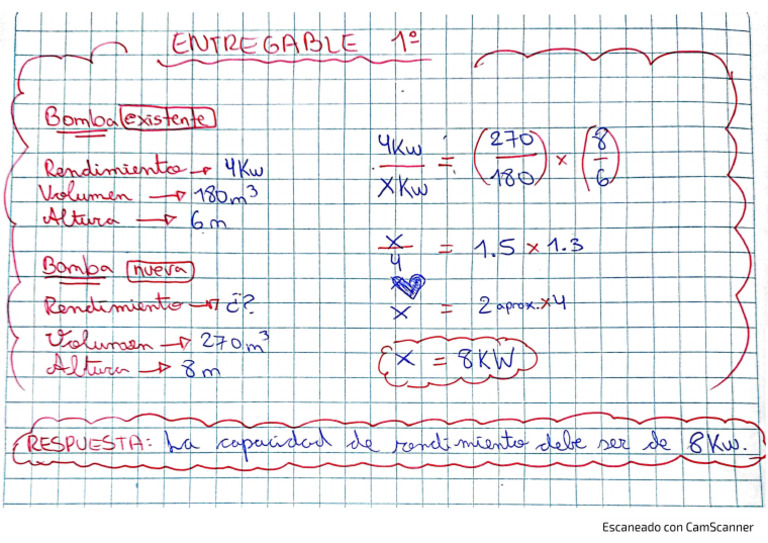 ENTREGABLE 1º
Bomba existente
Rendimiento → 4Kw
Volumen → 180m³
Altura → 6m
Bomba nueva
Rendimiento → ¿?
Volumen → 270m³
Altura → 8m
4Kw / XKw = (270 / 180) × (8 / 6)
x / 4 = 1.5 × 1.3
x = 2 aprox. × 4
x = 8KW
RESPUESTA: La capacidad de rendimiento debe ser de 8Kw.
Escaneado con CamScanner